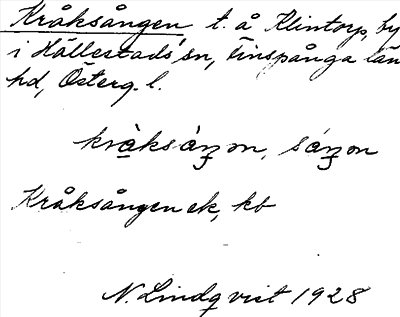 Kråksången t. å Klintorp, by
i Hällestads sn, Finspånga län
hd, Österg. l.
kràksáŋon, sáŋon
Kråksången ek, kb
N. Lindqvist 1928